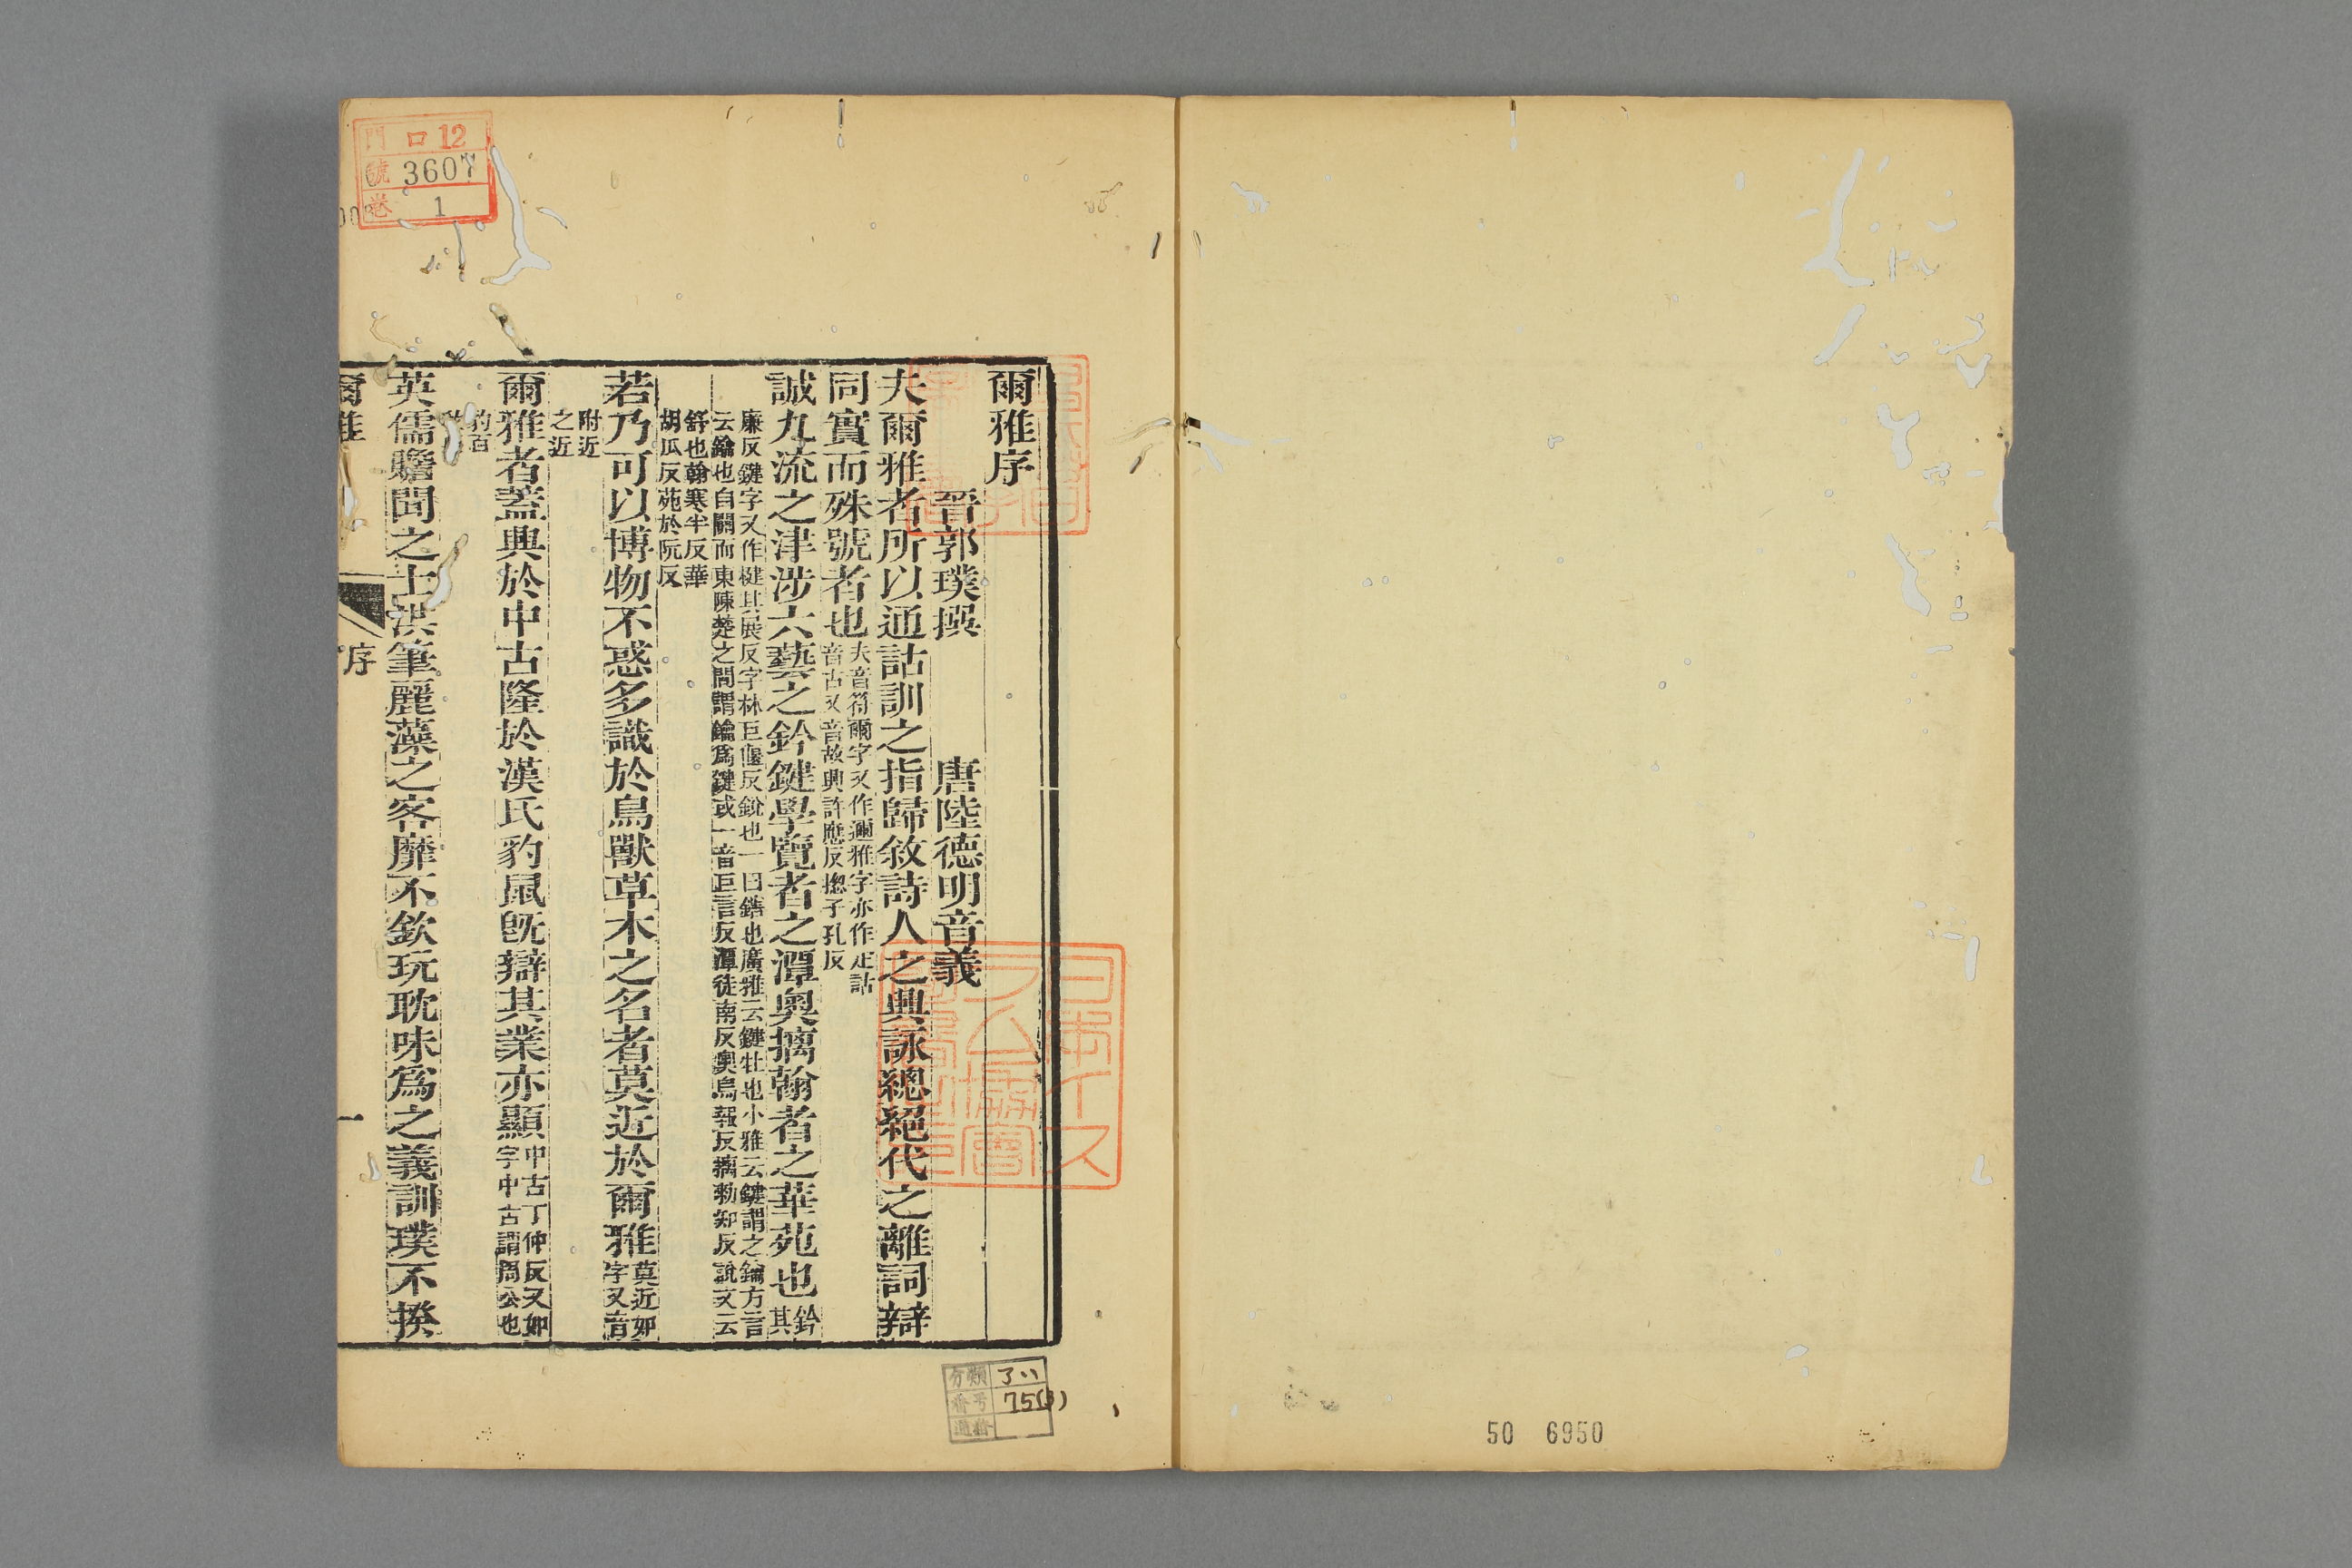 爾雅序
晉郭璞撰 唐陸德明音義
夫爾雅者所以通詁訓之指歸敘詩人之興詠總絕代之離詞辯
同實而殊號者也夫音符爾字又作邇雅字亦作疋詁音古又音故興許應反揔子孔反
誠九流之津涉六藝之鈐鍵學覽者之潭奧摛翰者之華苑也鈐其
廉反鍵字又作楗其展反字林巨偃反鉉也一曰鐥也廣雅云鍵牡也小雅云鍵謂之鑰方言
云鑰也自關而東陳楚之間謂鑰為鍵或一音巨言反潭徒南反奧烏報反摛勑知反說文云
舒也翰寒半反華
胡瓜反苑於阮反
若乃可以博物不惑多識於鳥獸草木之名者莫近於爾雅莫近如字又音
附近
之近
爾雅者蓋興於中古隆於漢氏豹鼠旣辯其業亦顯中古丁仲反又如字中古謂周公也
豹百
英儒贍聞之士洪筆麗藻之客靡不欽玩耽味為之義訓璞不揆
爾雅 序 一
門 口12
號 3607
卷 1
分類 了ハ
番号 75(3)
50 6950